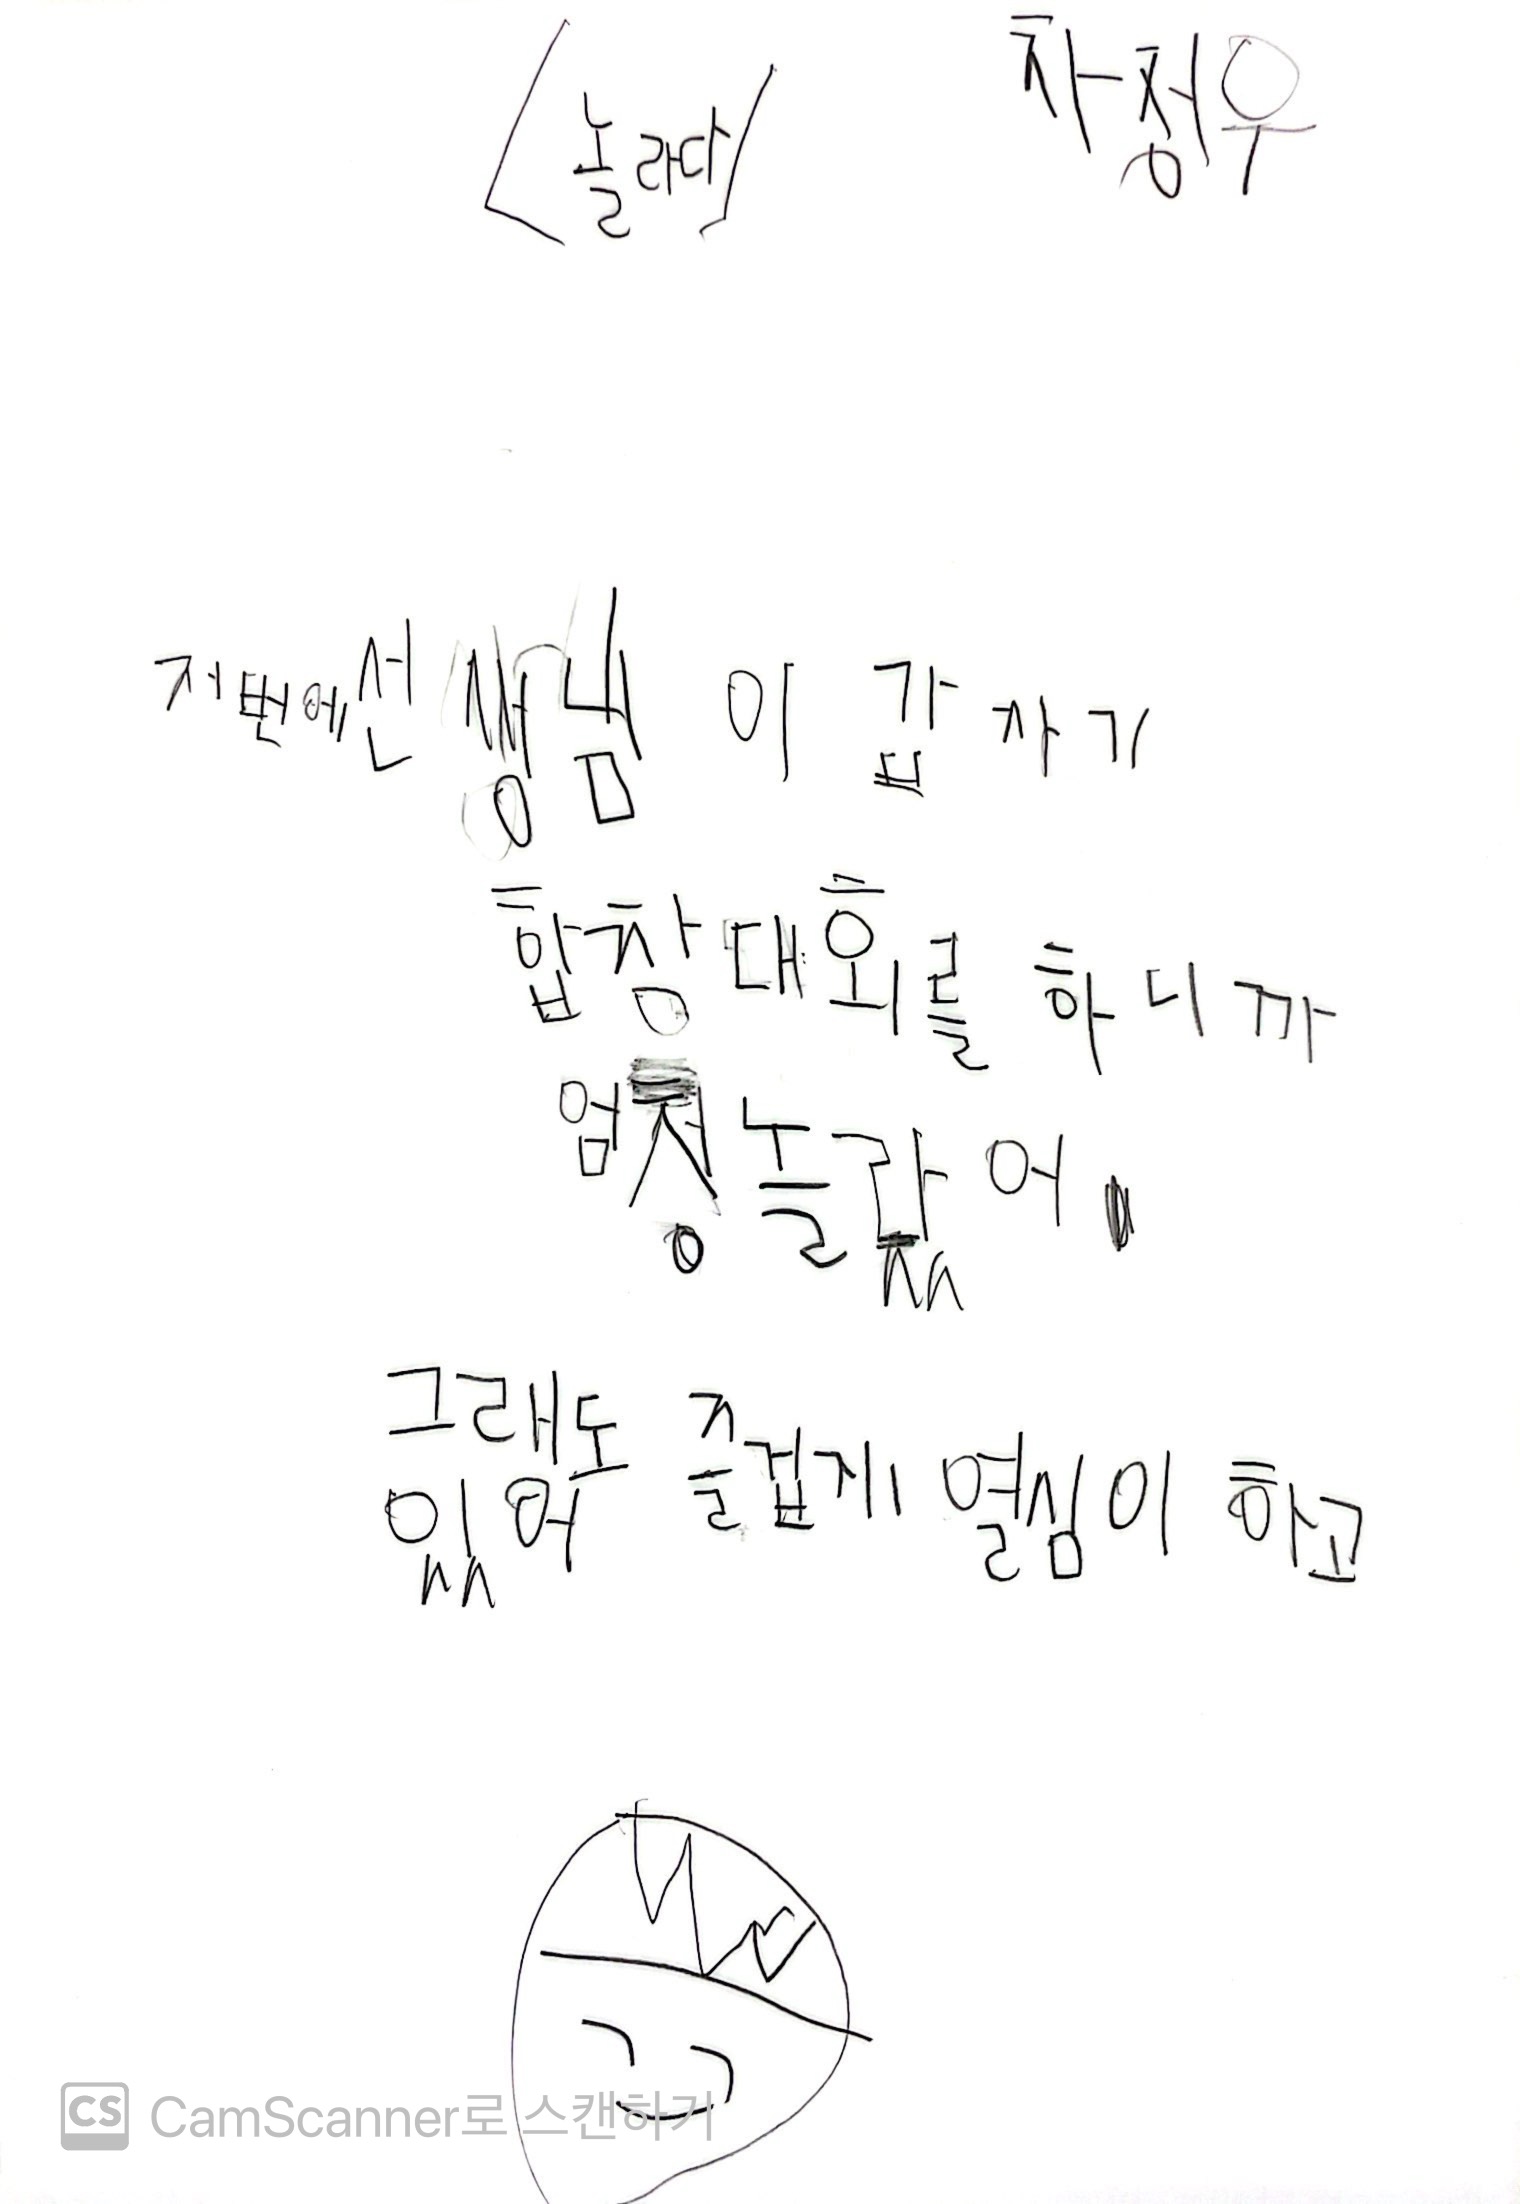 차정우
<놀라다>
저번에 선생님이 갑자기
합창대회를 하니까
엄청 놀랐어.
그래도 즐겁게 열심이 하고
있어
CS CamScanner로 스캔하기